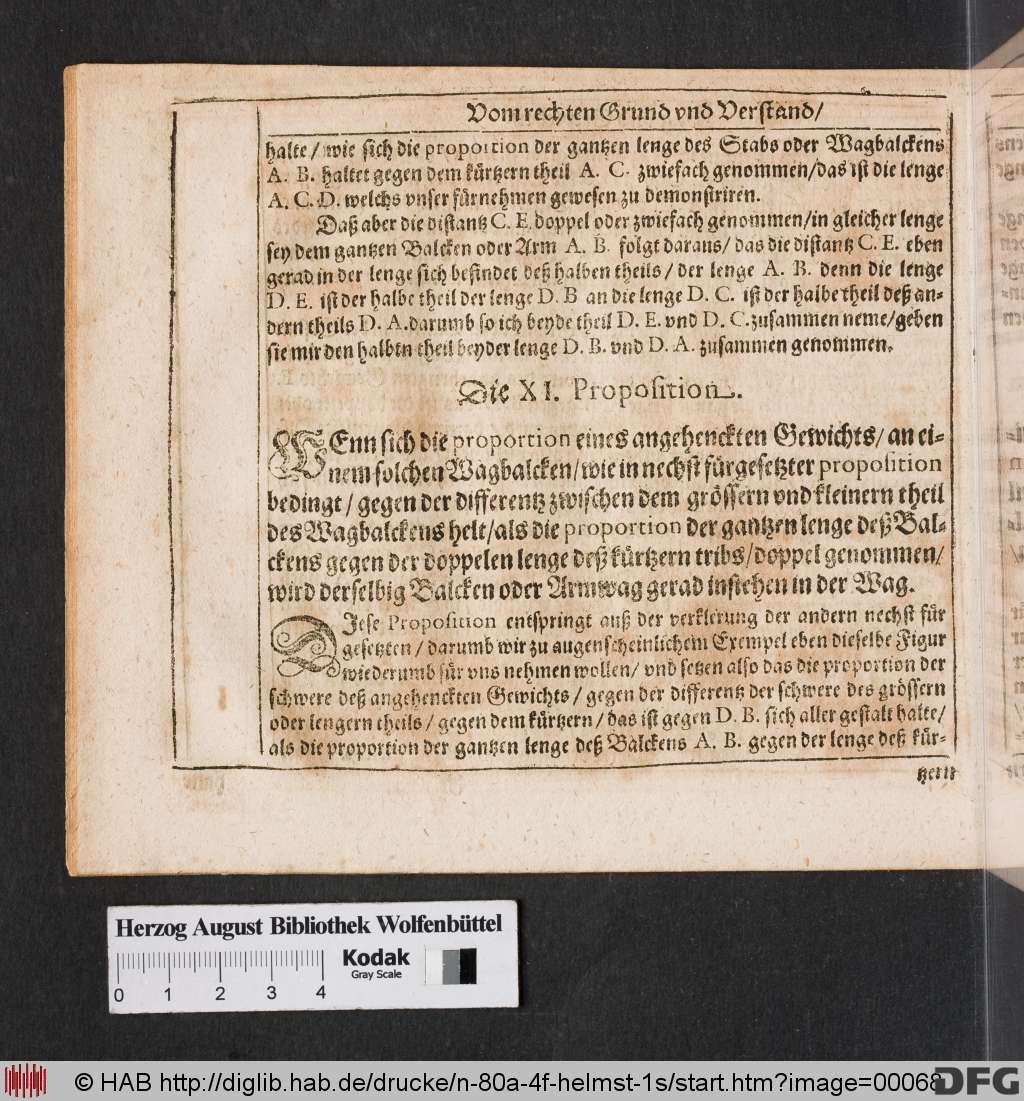 Vom rechten Grund vnd Verstand/
halte/ wie sich die proportion der gantzen lenge des Stabs oder Wagbalckens
A. B. haltet gegen dem kürtzern theil A. C. zwiefach genommen/das ist die lenge
A. C. D. welchs vnser fürnehmen gewesen zu demonstriren.
Daß aber die distantz C. E. doppel oder zwiefach genommen/in gleicher lenge
sey dem gantzen Balcken oder Arm A. B. folgt daraus/ das die distantz C. E. eben
gerad in der lenge sich befindet deß halben theils/ der lenge A. B. denn die lenge
D. E. ist der halbe theil der lenge D. B an die lenge D. C. ist der halbe theil deß an-
dern theils D. A. darumb so ich beyde theil D. E. vnd D. C. zusammen neme/geben
sie mir den halben theil beyder lenge D. B. vnd D. A. zusammen genommen.
Die XI. Proposition.
WEnn sich die proportion eines angehenckten Gewichts/ an ei-
nem solchen Wagbalcken/wie in nechst fürgesetzter proposition
bedingt/ gegen der differentz zwischen dem grössern vnd kleinern theil
des Wagbalckens helt/als die proportion der gantzen lenge deß Bal-
ckens gegen der doppelen lenge deß kürtzern tribs/doppel genommen/
wird derselbig Balcken oder Armwag gerad instehen in der Wag.
DIese Proposition entspringt auß der verklerung der andern nechst für
gesetzten/ darumb wir zu augenscheinlichem Exempel eben dieselbe Figur
wiederumb für vns nehmen wollen/ vnd setzen also das die proportion der
schwere deß angehenckten Gewichts/ gegen der differentz der schwere des grössern
oder lengern theils/ gegen dem kürtzern/ das ist gegen D. B. sich aller gestalt halte/
als die proportion der gantzen lenge deß Balckens A. B. gegen der lenge deß kür-
tzern
Herzog August Bibliothek Wolfenbüttel
Kodak
Gray Scale
0 1 2 3 4
© HAB http://diglib.hab.de/drucke/n-80a-4f-helmst-1s/start.htm?image=00068
DFG